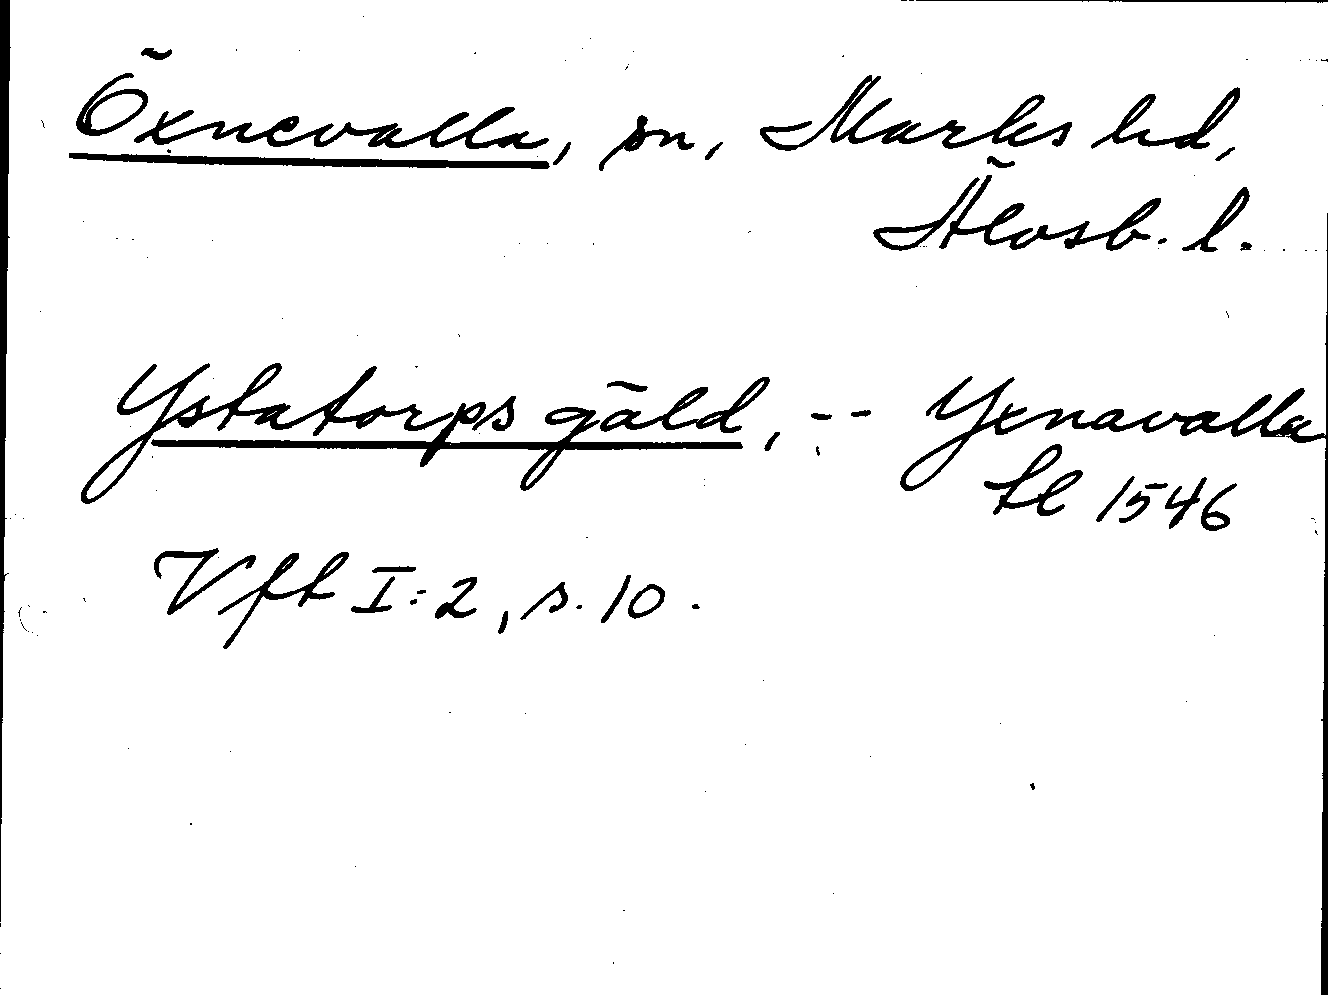 Öxnevalla, sn, Marks hd,
Älvsb. l.
Ystatorps gäld, -- Yxnavalla
Sl 1546
Vft I:2, s. 10.